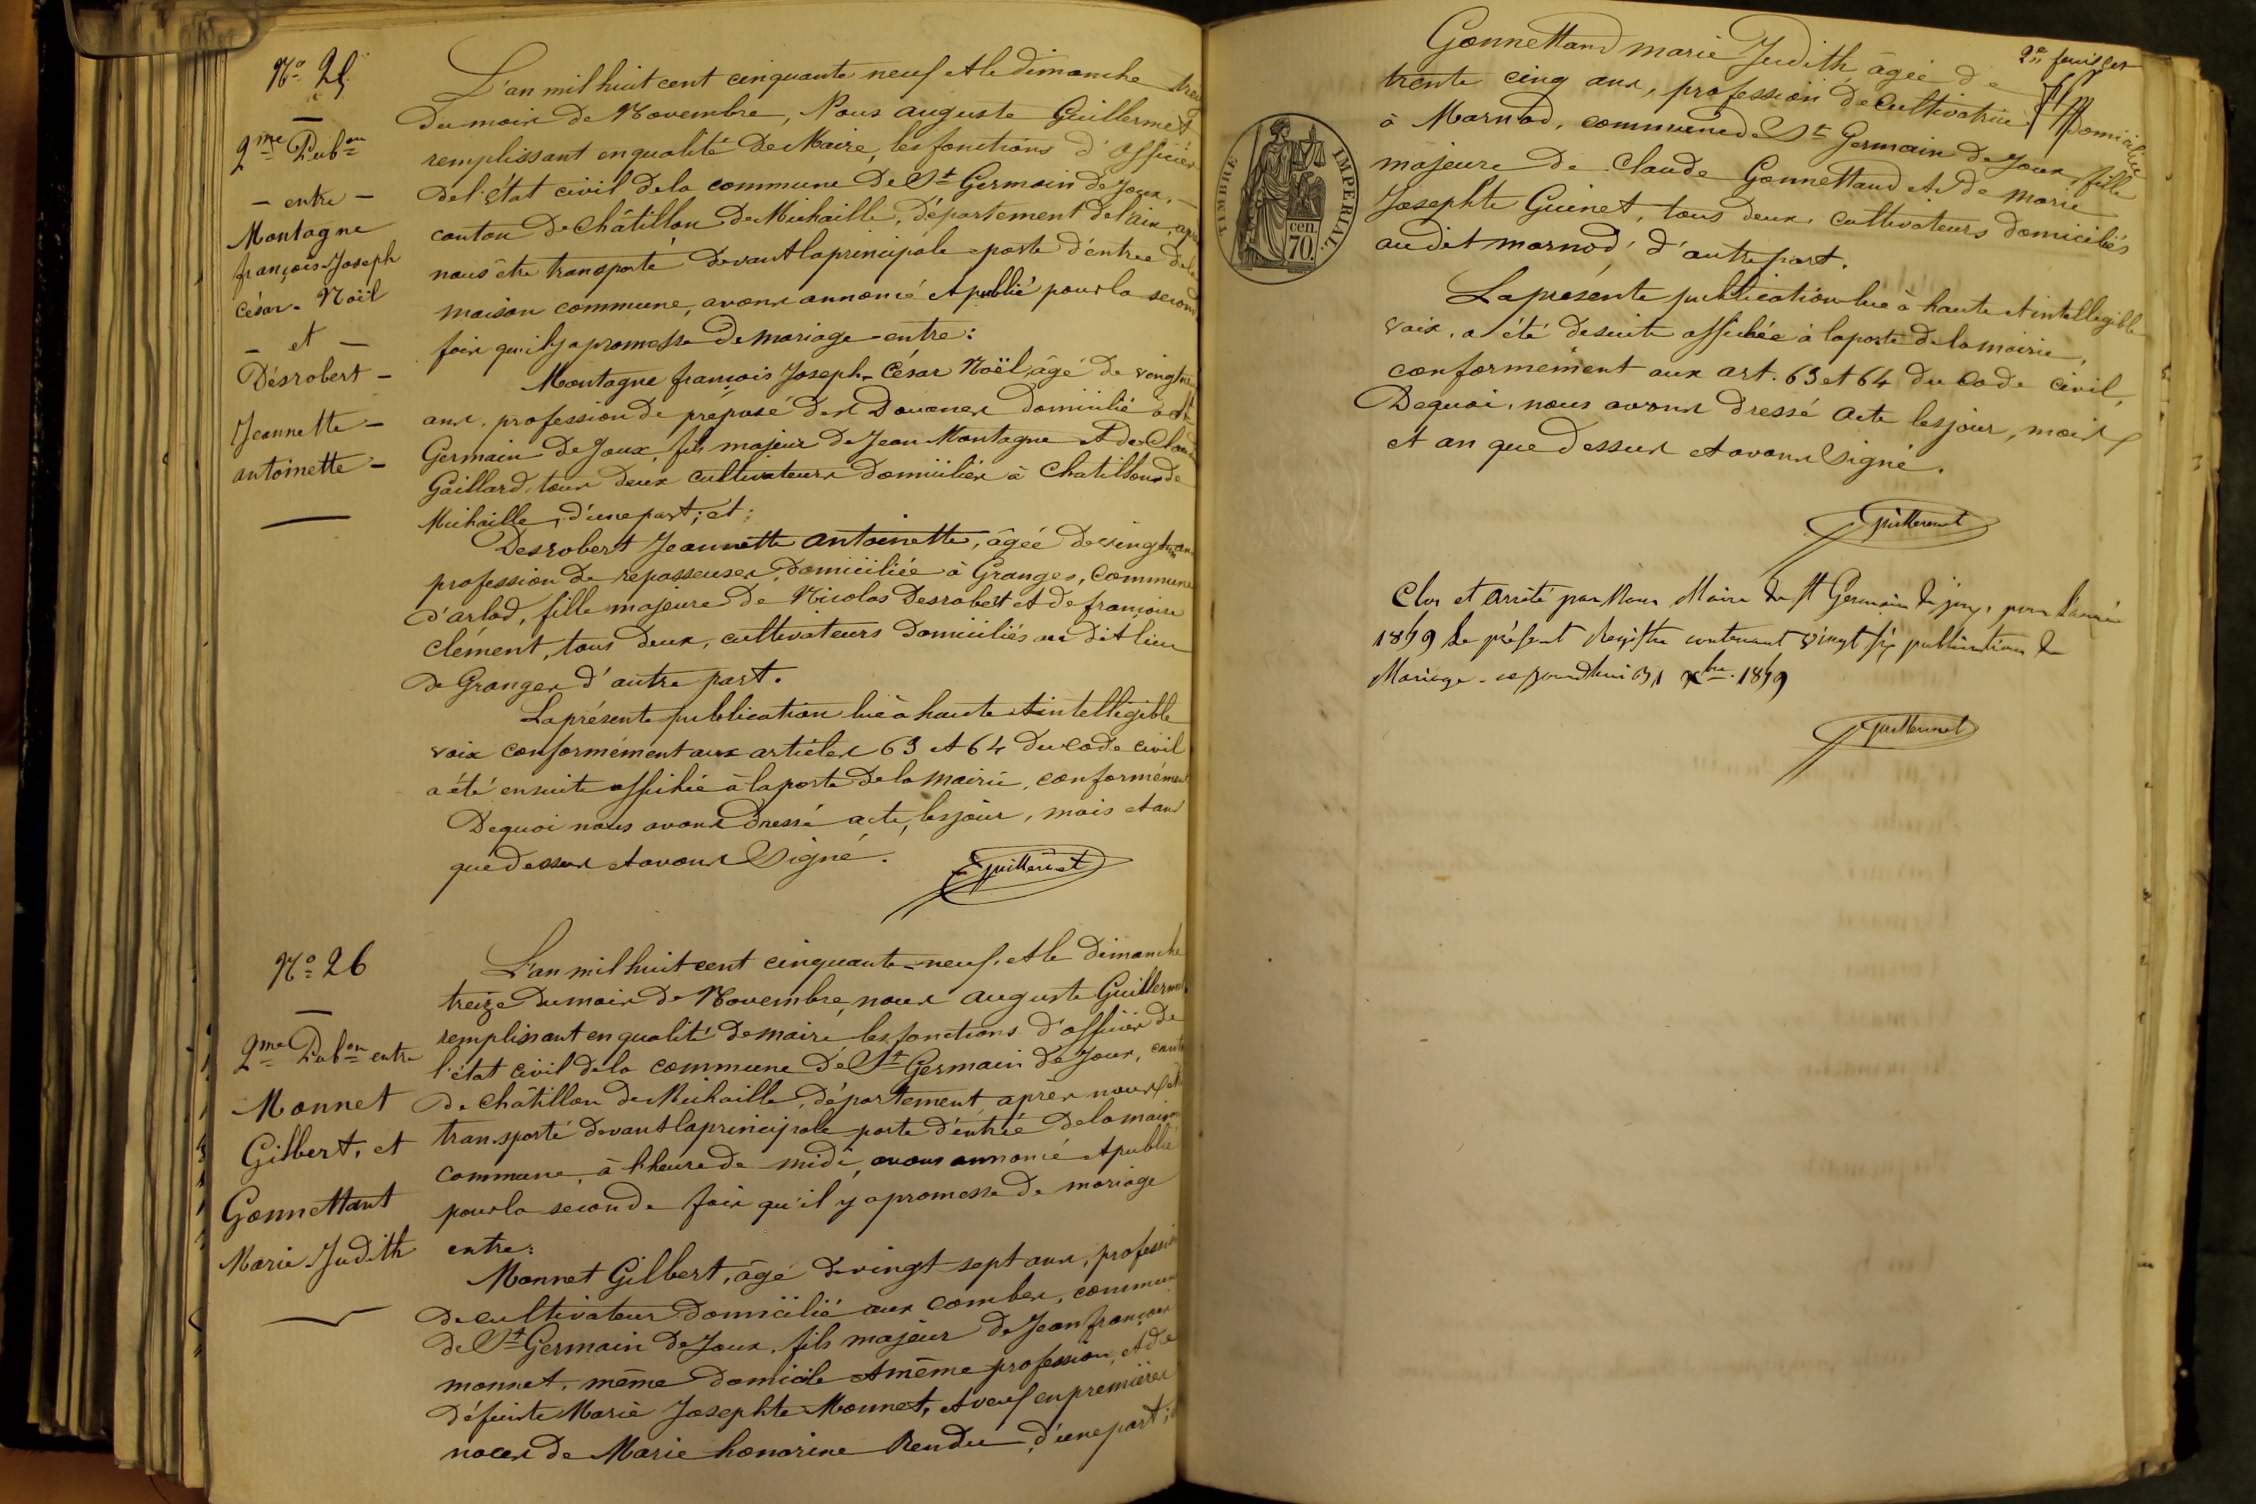 No 25
2me Pubon
- entre -
Montagne
françois-Joseph
César - Noël
- et -
Désrobert -
Jeannette -
antoinette -
L'an mil huit cent cinquante neuf et le dimanche
du mois de Novembre, Nous auguste Guillermet
remplissant en qualité de Maire, les fonctions d'officier
de l'état civil de la commune de St Germain de Joux,
canton de Châtillon de Michaille, département de l'ain, après
nous être transporté devant la principale porte d'entrée de la
maison commune, avons annoncé et publié pour la seconde
fois qu'il y a promesse de mariage entre:
Montagne françois Joseph-César Noël, âgé de vingt
ans, profession de préposé des Douanes domicilié à St
Germain de Joux, fils majeur de Jean Montagne et de
Gaillard, tous deux cultivateurs domiciliés à Chatillon de
Michaille, d'une part; et;
Desrobert Jeannette antoinette, âgée de vingt
profession de repasseuse, domiciliée à Granges, commune
d'arlod, fille majeure de Nicolas Desrobert et de françoise
Clément, tous deux, cultivateurs domiciliés au dit lieu
de Granges d'autre part.
La présente publication lue à haute et intelligible
voix conformément aux articles 63 et 64 du code civil
a été ensuite affichée à la porte de la mairie, conformément
De quoi nous avons dressé acte, les jour, mois et an
que dessus et avons signé.
Guillermet
No 26
2me Pubon entre
Monnet
Gilbert, et
Gonnettant
Marie Judith
L'an mil huit cent cinquante-neuf, et le dimanche
treize du mois de Novembre, nous auguste Guillermet
remplissant en qualité de maire les fonctions d'officier de
l'état civil de la commune de St Germain de Joux, canton
de Châtillon de Michaille, département, après nous être
transporté devant la principale porte d'entrée de la maison
commune, à l'heure de midi, avons annoncé et publié
pour la seconde fois qu'il y a promesse de mariage
entre:
Monnet Gilbert, âgé de vingt sept ans, profession
de cultivateur domicilié aux combes, commune
de St Germain de Joux, fils majeur de Jean françois
monnet, même domicile et même profession, et de
défunte Marie Josephte Monnet, et veuf en premières
noces de Marie honorine Rendu, d'une part;
2e feuillet
Gonnettand marie Judith, âgée de
trente cinq ans, profession de cultivatrice domiciliée
à Marnod, commune de St Germain de Joux, fille
majeure de Claude Gonnettand et de marie
Josephte Guinet, tous deux cultivateurs domiciliés
audit marnod, d'autre part.
TIMBRE IMPERIAL
70 cen.
La présente publication lue à haute et intelligible
voix, a été de suite affichée à la porte de la mairie,
conformément aux art. 63 et 64 du code civil,
De quoi, nous avons dressé acte les jour, mois
et an que dessus et avons signé.
Guillermet
Clos et arrêté par Nous Maire de St Germain de joux, pour l'année
1859 le présent Registre contenant vingt six publications de
Mariage - ce jourd'hui 31 Xbre 1859
Guillermet